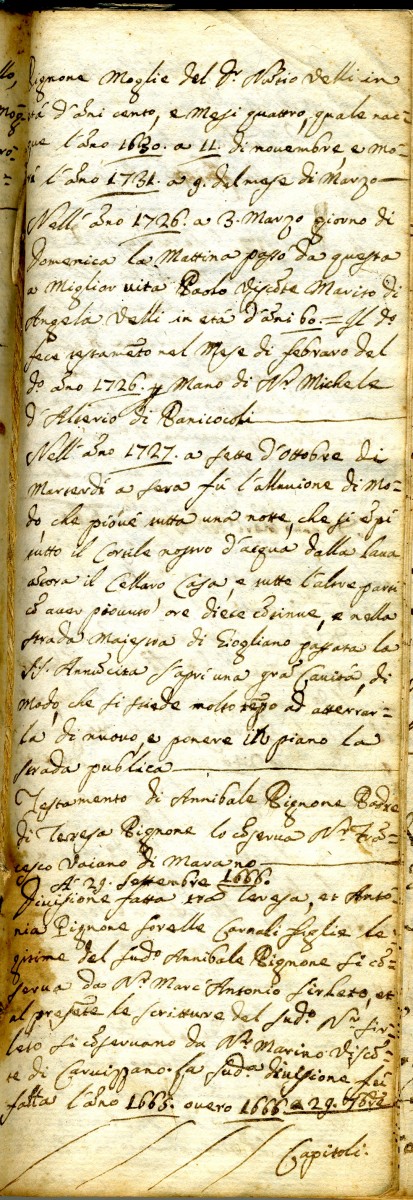 Pignone Moglie del Sr. Nutio Velli in
età d'āni cento, e Mesi quattro, quale nac=
que l'āno 1630. a 11. di novembre, e mo=
rì l'āno 1731. a 9. del mese di Marzo
Nell'āno 1726. a 3. Marzo giorno di
Domenica la Mattina passò da questa
a miglior vita Paolo Viscōte Marito di
Angela Velli in età d'āni 60. = Il do
fece testamēto nel Mese di febraro del
do āno 1726. p Mano di Nr Michele
d'Alterio di Panicocoli
Nell'āno 1727. a sette d'ottobre di
Marterdì a sera fù l'alluvione di Mo=
do, che piovè tutta una notte, che si ēpì
tutto il Cortile nostro d'acqua dalla lava
ācora il Cellaro Casa, e tutte l'altre parti
cō aver piovuto ore diece cōtinue, e nella
strada Maiestra di Giogliano passata la
SS. Annūciata s'aprì una grā Cavità, di
Modo, che si stiede molto tēpo ad atterrar=
la di nuovo, e ponere in piano la
strada publica
Testamento di Annibale Pignone Padre
di Teresa Pignone lo cōserva Nr Frā=
cesco Vaiano di Marano
A' 29. Settembre 1666.
Divisione fatta trà Teresa, et Antō=
nia Pignone sorelle Carnali figlie le=
gitime del sudo Annibale Pignone si cō=
serva da Nr Marc'Antonio Sirleto, et
al presēte le scritture del sudo Nr Sir=
leto si cōservano da Nr Marino Viscō=
te di Carvizzano. La suda divisione fu
fatta l'āno 1665. overo 1666. a 29. 7bre
Capitoli.